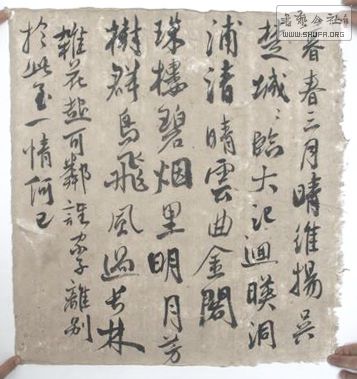 春三月晴維揚吳
楚城〻臨大汜迴暎洞
浦清晴雲曲金閣
珠樓碧烟里明月芳
樹群鳥飛風過長林
雜花起可鄰誰家子離別
於此至一情何已
書藝公社
WWW.SHUFA.ORG